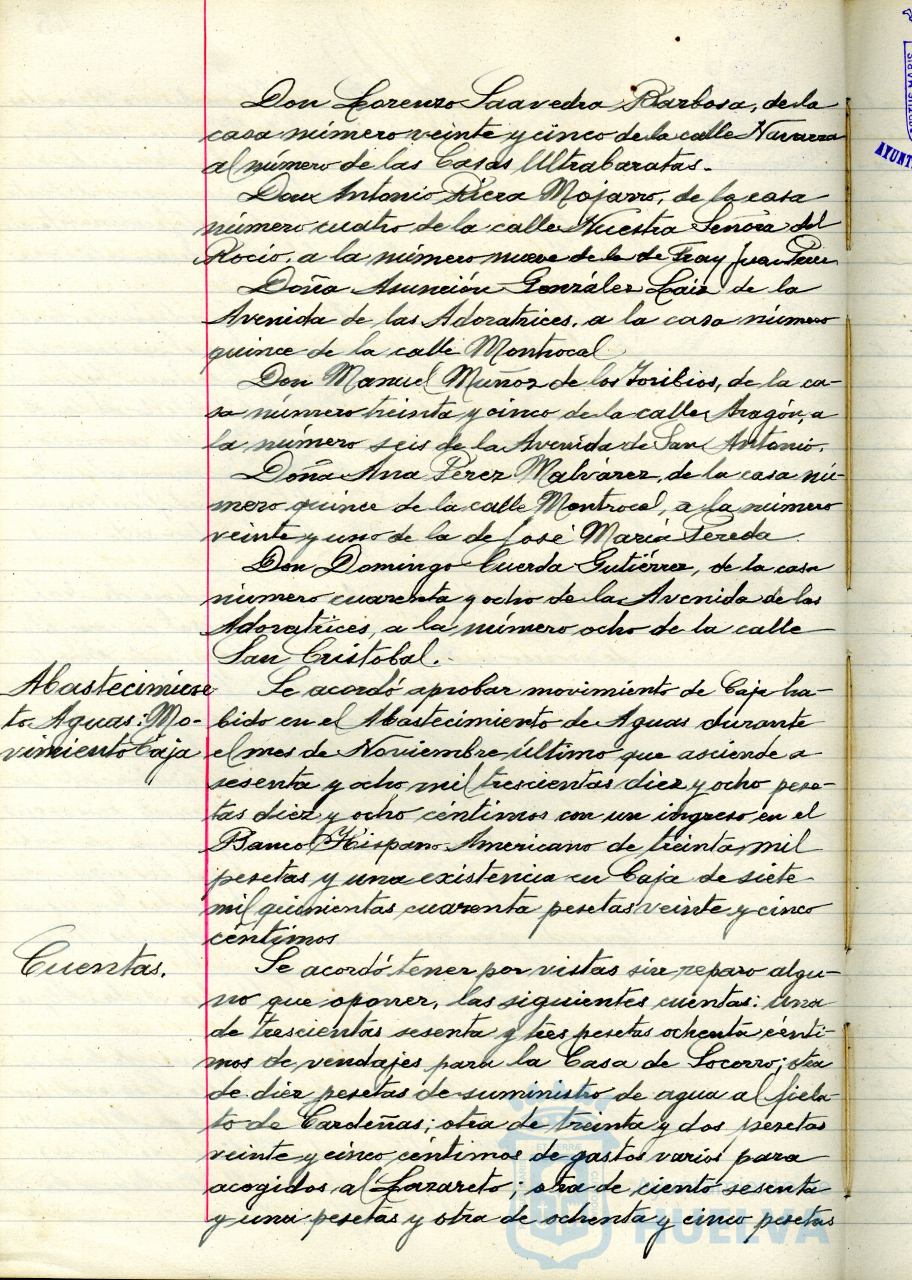 Don Lorenzo Saavedra Barbosa, de la
casa número veinte y cinco de la calle Navarra
al número de las Casas Ultrabaratas.
Don Antonio Riera Mojarro, de la casa
número cuatro de la calle Nuestra Señora del
Rocío, a la número nueve de la de Fray Juan Perez
Doña Asunción González Laiz de la
Avenida de las Adoratrices, a la casa número
quince de la calle Montrocal
Don Manuel Muñoz de los Toribios, de la ca-
sa número treinta y cinco de la calle Aragón, a
la número seis de la Avenida de San Antonio.
Doña Ana Pérez Malvárez, de la casa nú-
mero quince de la calle Montrocal, a la número
veinte y uno de la de José María Pereda.
Don Domingo Cuerda Gutiérrez, de la casa
número cuarenta y ocho de la Avenida de las
Adoratrices, a la número ocho de la calle
San Cristobal.-
Abastecimien
to Aguas: Mo-
vimiento Caja
Se acordó aprobar movimiento de Caja ha-
bido en el Abastecimiento de Aguas durante
el mes de Noviembre último que asciende a
sesenta y ocho mil trescientas diez y ocho pese-
tas diez y ocho céntimos con un ingreso en el
Banco Hispano-Americano de treinta mil
pesetas y una existencia en Caja de siete
mil quinientas cuarenta pesetas veinte y cinco
céntimos
Cuentas.
Se acordó tener por vistas sin reparo algu-
no que oponer, las siguientes cuentas: una
de trescientas sesenta y tres pesetas ochenta cénti-
mos de vendajes para la Casa de Socorro; otra
de diez pesetas de suministro de agua al fiela-
to de Cardeñas; otra de treinta y dos pesetas
veinte y cinco céntimos de gastos varios para
acogidos al Lazareto; otra de ciento sesenta
y una pesetas y otra de ochenta y cinco pesetas
HUELVA